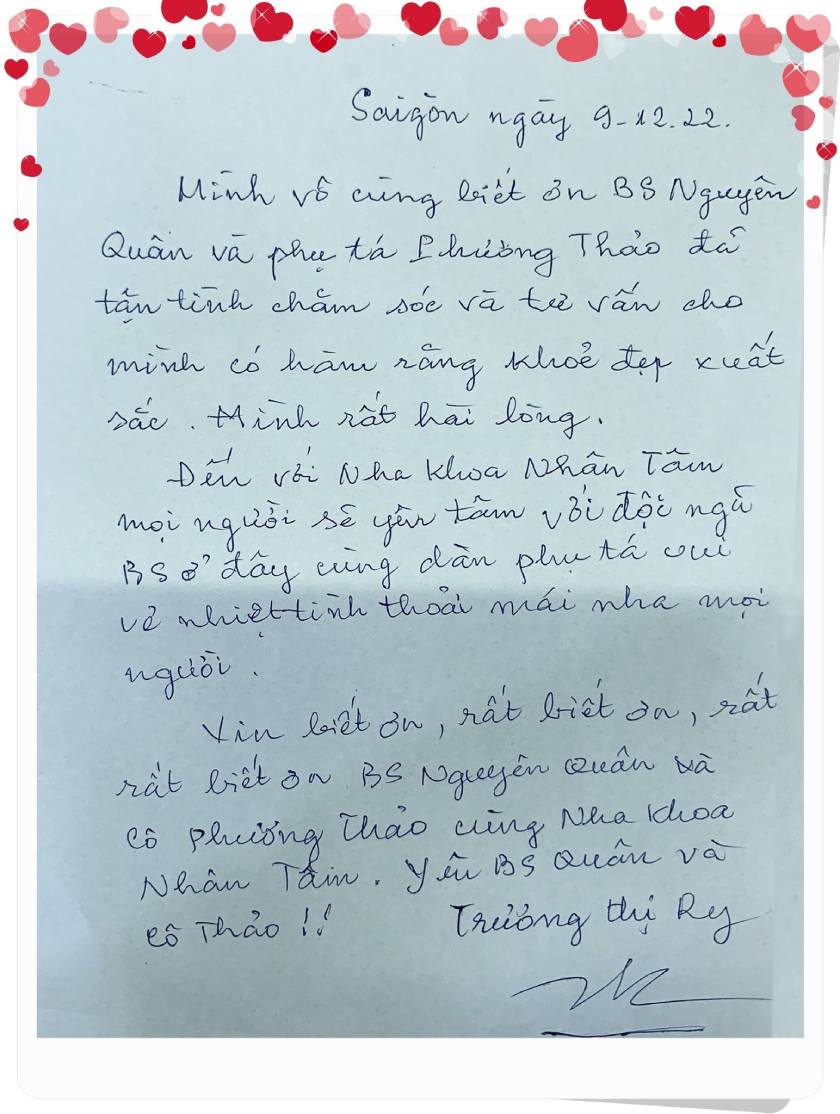 Saigòn ngày 9-12.22.
Mình vô cùng biết ơn BS Nguyên
Quân và phụ tá Phương Thảo đã
tận tình chăm sóc và tư vấn cho
mình có hàm răng khoẻ đẹp xuất
sắc. Mình rất hài lòng.
Đến với Nha Khoa Nhân Tâm
mọi người sẽ yên tâm với đội ngũ
BS ở đây cùng dàn phụ tá vui
vẻ nhiệt tình thoải mái nha mọi
người.
Xin biết ơn, rất biết ơn, rất
rất biết ơn BS Nguyên Quân và
cô Phương Thảo cùng Nha Khoa
Nhân Tâm. Yêu BS Quân và
cô Thảo !!
Trương Thị Ry